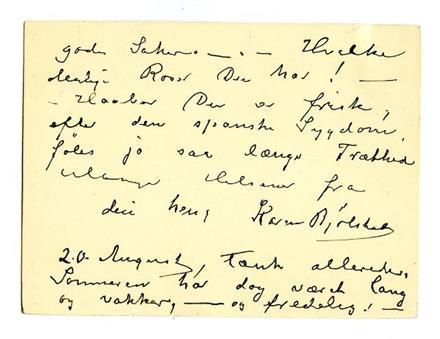 gode Sakers — . — Hvilke
deilige Roser Der har! —
— Haaber Der er frisk,
efter den spanske Sygdom,
føles jo saa længe Træthed
Mange Hilsener fra
din heng Karen Bjølstad
20 August, Tænk allerede,
Sommeren har dog været lang
og vakker, — og fredelig! —